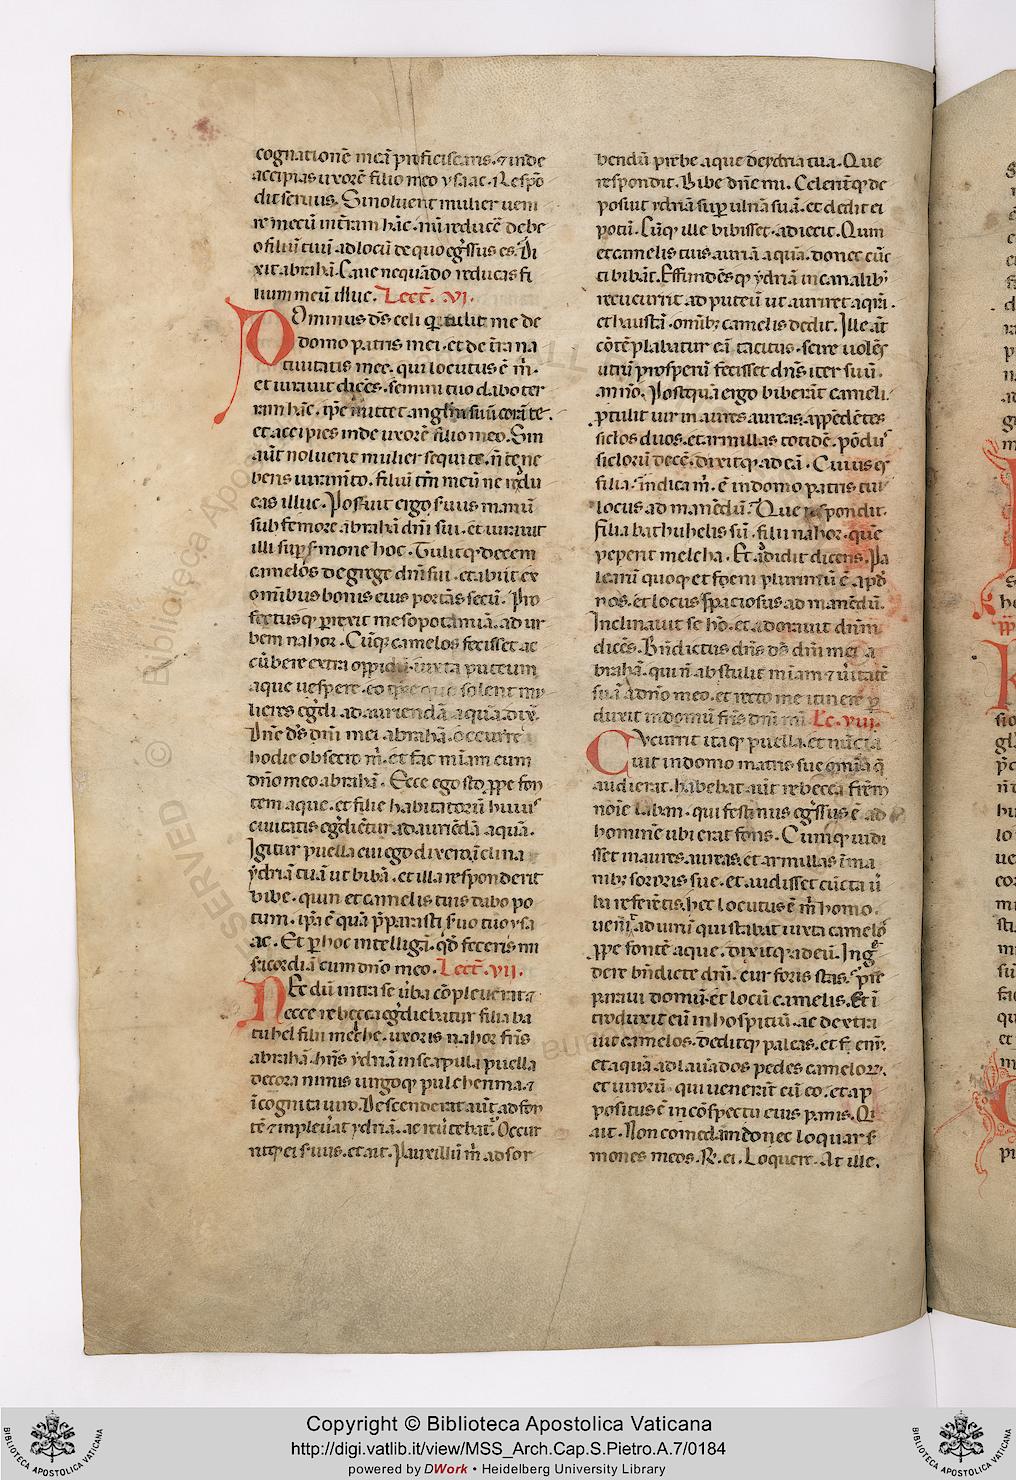 cognationē meā proficiscaris. ⁊ inde
accipias uxorē filio meo ysaac. Respō
dit seruus. Si noluerit mulier ueni
re mecū in t̄ram hāc. nū reducē debe
o filiū tuū ad locū de quo eg̃ssus es. Di
xit abrahā. Caue nequādo reducas fi
lium meū illuc. Lect̄. VI.
Dominus dš celi qui tulit me de
domo patris mei. et de t̄ra na
tiuitatis mee. qui locutus ē m̄.
et iurauit dicēs. semini tuo dabo ter
ram hāc. ip̄e mittet anglm̄ suū corā te.
et accipies inde uxorē filio meo. Sin
aūt noluerit mulier sequi te. n̄ tene
beris iuram̄to. filiū tm̄ meū ne redu
cas illuc. Posuit ergo s̓uus manū
sub femore abrahā dn̄i sui. et iurauit
illi sup s̓mone hoc. Tulitq; decem
camelos de grege dn̄i sui. et abiit ex
om̄ibus bonis eius portās secū. Pro
fectusq; p̄rexit mesopotamiā. ad ur
bem nahor. Cūq; camelos fecisset ac
cūbere extra oppidū. iuxta puteum
aque uespere. eo tp̄re quo solent mu
lieres eg̃di. ad auriendā aquā. dix̄.
Dn̄e dš dn̄i mei abrahā. occurre
hodie obsecro m̄. et fac mīam cum
dn̄o meo abrahā. Ecce ego sto p̄pe fon
tem aque. et filie habitatorū huius
ciuitatis eg̃diētur. ad auriēdā aquā.
Igitur puella cui ego dixero inclina
ydriā tuā ut bibā. et illa responderit
bibe. quin et camelis tuis dabo po
tum. ip̄a ē quā p̄parasti s̓uo tuo ysa
ac. Et p hoc intelligā. qd̄ feceris mi
sicordiā cum dn̄o meo. Lect̄. VII.
Necdū intra se ūba cōpleuerat. ⁊
ecce rebecca eg̃diebatur filia ba
tuhel filii melche. uxoris nahor fr̄is
abrahā. hn̄s ydriā in scapula. puella
decora nimis uirgoq; pulcherrima. ⁊
īcognita uiro. Descenderat aūt ad fon
tē ⁊ impleu̓at ydriā. ac reu̓tebat̄. Occur
ritq; ei s̓uus. et ait. Pauxillū m̄ ad sor
bendū prebe aque de ydria tua. Que
respondit. Bibe dn̄e mi. Celeritq; de
posuit ydriā sup ulnā suā. et dedit ei
potū. Cūq; ille bibisset. adiecit. Quin
et camelis tuis auriā aquā. donec cūc
ti bibāt. Effundēsq; ydriā in canalib;
recucurrit ad puteū ut auriret aquā.
et haustā. om̄ib; camelis dedit. Ille aūt
cōtēplabatur eā tacitus. scire uolēs
utrū prosperū fecisset dn̄s iter suū.
an nō. Postquā ergo biberāt cameli.
p̄tulit uir in aures aureas. appēdētes
siclos duos. et armillas totidē. pōdus
siclorū decē. dixitq; ad eā. Cuius es
filia. īndica m̄. ē in domo patris tui
locus ad manēdū. Que respondit.
Filia bathuhelis sū. filii nahor. quē
peperit melcha. Et addidit dicens. Pa
learū quoq; et foeni plurimū ē apd̄
nos. et locus spaciosus ad manēdū.
Inclinauit se hō. et adorauit dn̄m
dicēs. Bn̄dictus dn̄s dš dn̄i mei a
brahā. qui n̄ abstulit mīam ⁊ u̓itatē
suā a dn̄o meo. et recto me itinere p
duxit in domū fr̄is dn̄i mei. Lc. VIII.
Cucurrit itaq; puella. et nūcia
uit in domo matris sue om̄ia q̄
audierat. habebat aūt rebecca fr̄em
noīe laban. qui festinus eg̃ssus ē ad
hominē ubi erat fons. Cumq; uidi
sset inaures. aureas. et armillas ī ma
nib; sororis sue. et audisset cūcta ū
ba referētis. hec locutus ē m̄ homo.
uenit ad uirū qui stabat iuxta camelos
p̄pe fontē aque. dixitq; ad eū. Ing̃
dere bn̄dicte dn̄i. cur foris stas. p̄pa
raui domū. et locū camelis. Et ī
troduxit eū in hospitiū. ac destra
uit camelos. deditq; paleas. et fenū.
et aquā ad lauādos pedes camelorꝝ.
et uirorū qui uenerāt cū eo. et ap
positus ē in cōspectu eius panis. Qi
ait. Non comedam donec loquar s̓
mones meos. R̄. ei. Loquere. At ille.
Copyright © Biblioteca Apostolica Vaticana
http://digi.vatlib.it/view/MSS_Arch.Cap.S.Pietro.A.7/0184
powered by DWork • Heidelberg University Library
BIBLIOTECA APOSTOLICA VATICANA
BIBLIOTECA APOSTOLICA VATICANA